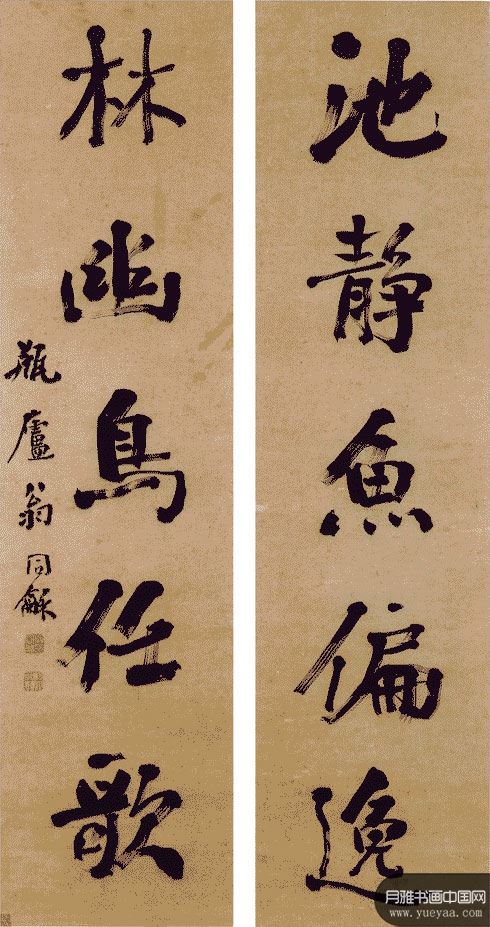 池静魚偏逸
林幽鳥任歌
瓶廬翁同龢
月雅书画中国网
www.yueyaa.com